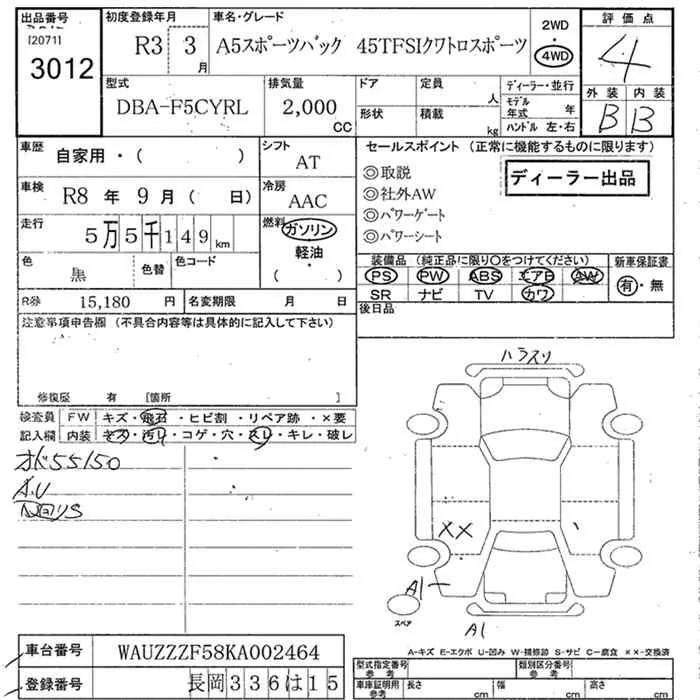 出品番号 初度登録年月 車名・グレード
[2071]
3012
R3 3月 A5スポーツバック 45TFSIクワトロスポーツ
2WD
4WD
評価点
4
型式 排気量 ドア 定員 人 ディーラー・並行
DBA-F5CYRL 2,000 CC
形状 積載 kg
モデル年式 年
ハンドル 左・右
外装 内装
B B
車歴 自家用・( )
シフト AT
セールスポイント (正常に機能するものに限ります)
◎取説
◎社外AW
◎パワーゲート
◎パワーシート
ディーラー出品
車検 R8 年 9 月 ( 日)
冷房 AAC
走行 5万5千149km
燃料 ガソリン
軽油・
( )
色 黒 色替 色コード
装備品 (純正品に限り○をつけてください) 新車保証書
PS PW ABS エアB AW
SR ナビ TV カワ
有・無
R券 15,180 円 名変期限 月 日
後日品
注意事項申告欄 (不具合内容等は具体的に記入して下さい)
修復歴 有 [箇所 ]
検査員 FW キズ・飛石・ヒビ割・リペア跡・×要
記入欄 内装 キズ・汚レ・コゲ・穴・スレ・キレ・破レ
55150
ハラスリ
××
A1
スペア
A1
A-キズ E-エクボ U-凹み W-補修跡 S-サビ C-腐食 ××-交換済
車台番号 WAUZZZF58KA002464
登録番号 長岡336は15
型式指定番号 参考 類別区分番号 参考
車庫証明用 参考 長さ cm 幅 cm 高さ cm